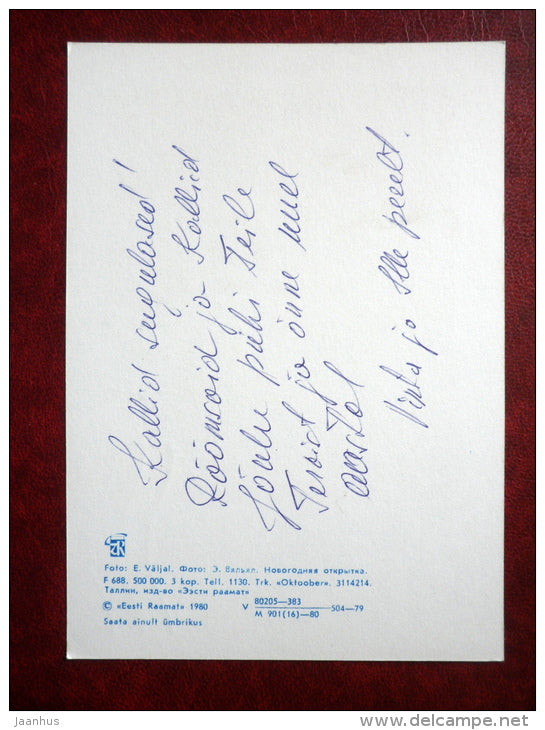 Kallid sugulased!
Rõõmsaid ja Kalleid
Jõulu pühi Teile
Tervist ja õnne uuel
aastal
ja Elle perelt.
Foto: E. Väljal. Фото: Э. Вяльял. Новогодняя открытка.
F 688. 500 000. 3 kop. Tell. 1130. Trk. «Oktoober». 3114214.
Таллин, изд-во «Ээсти раамат»
© «Eesti Raamat» 1980 V 80205—383 504—79
M 901(16)—80
Saata ainult ümbrikus
Jaanhus
www.delcampe.net